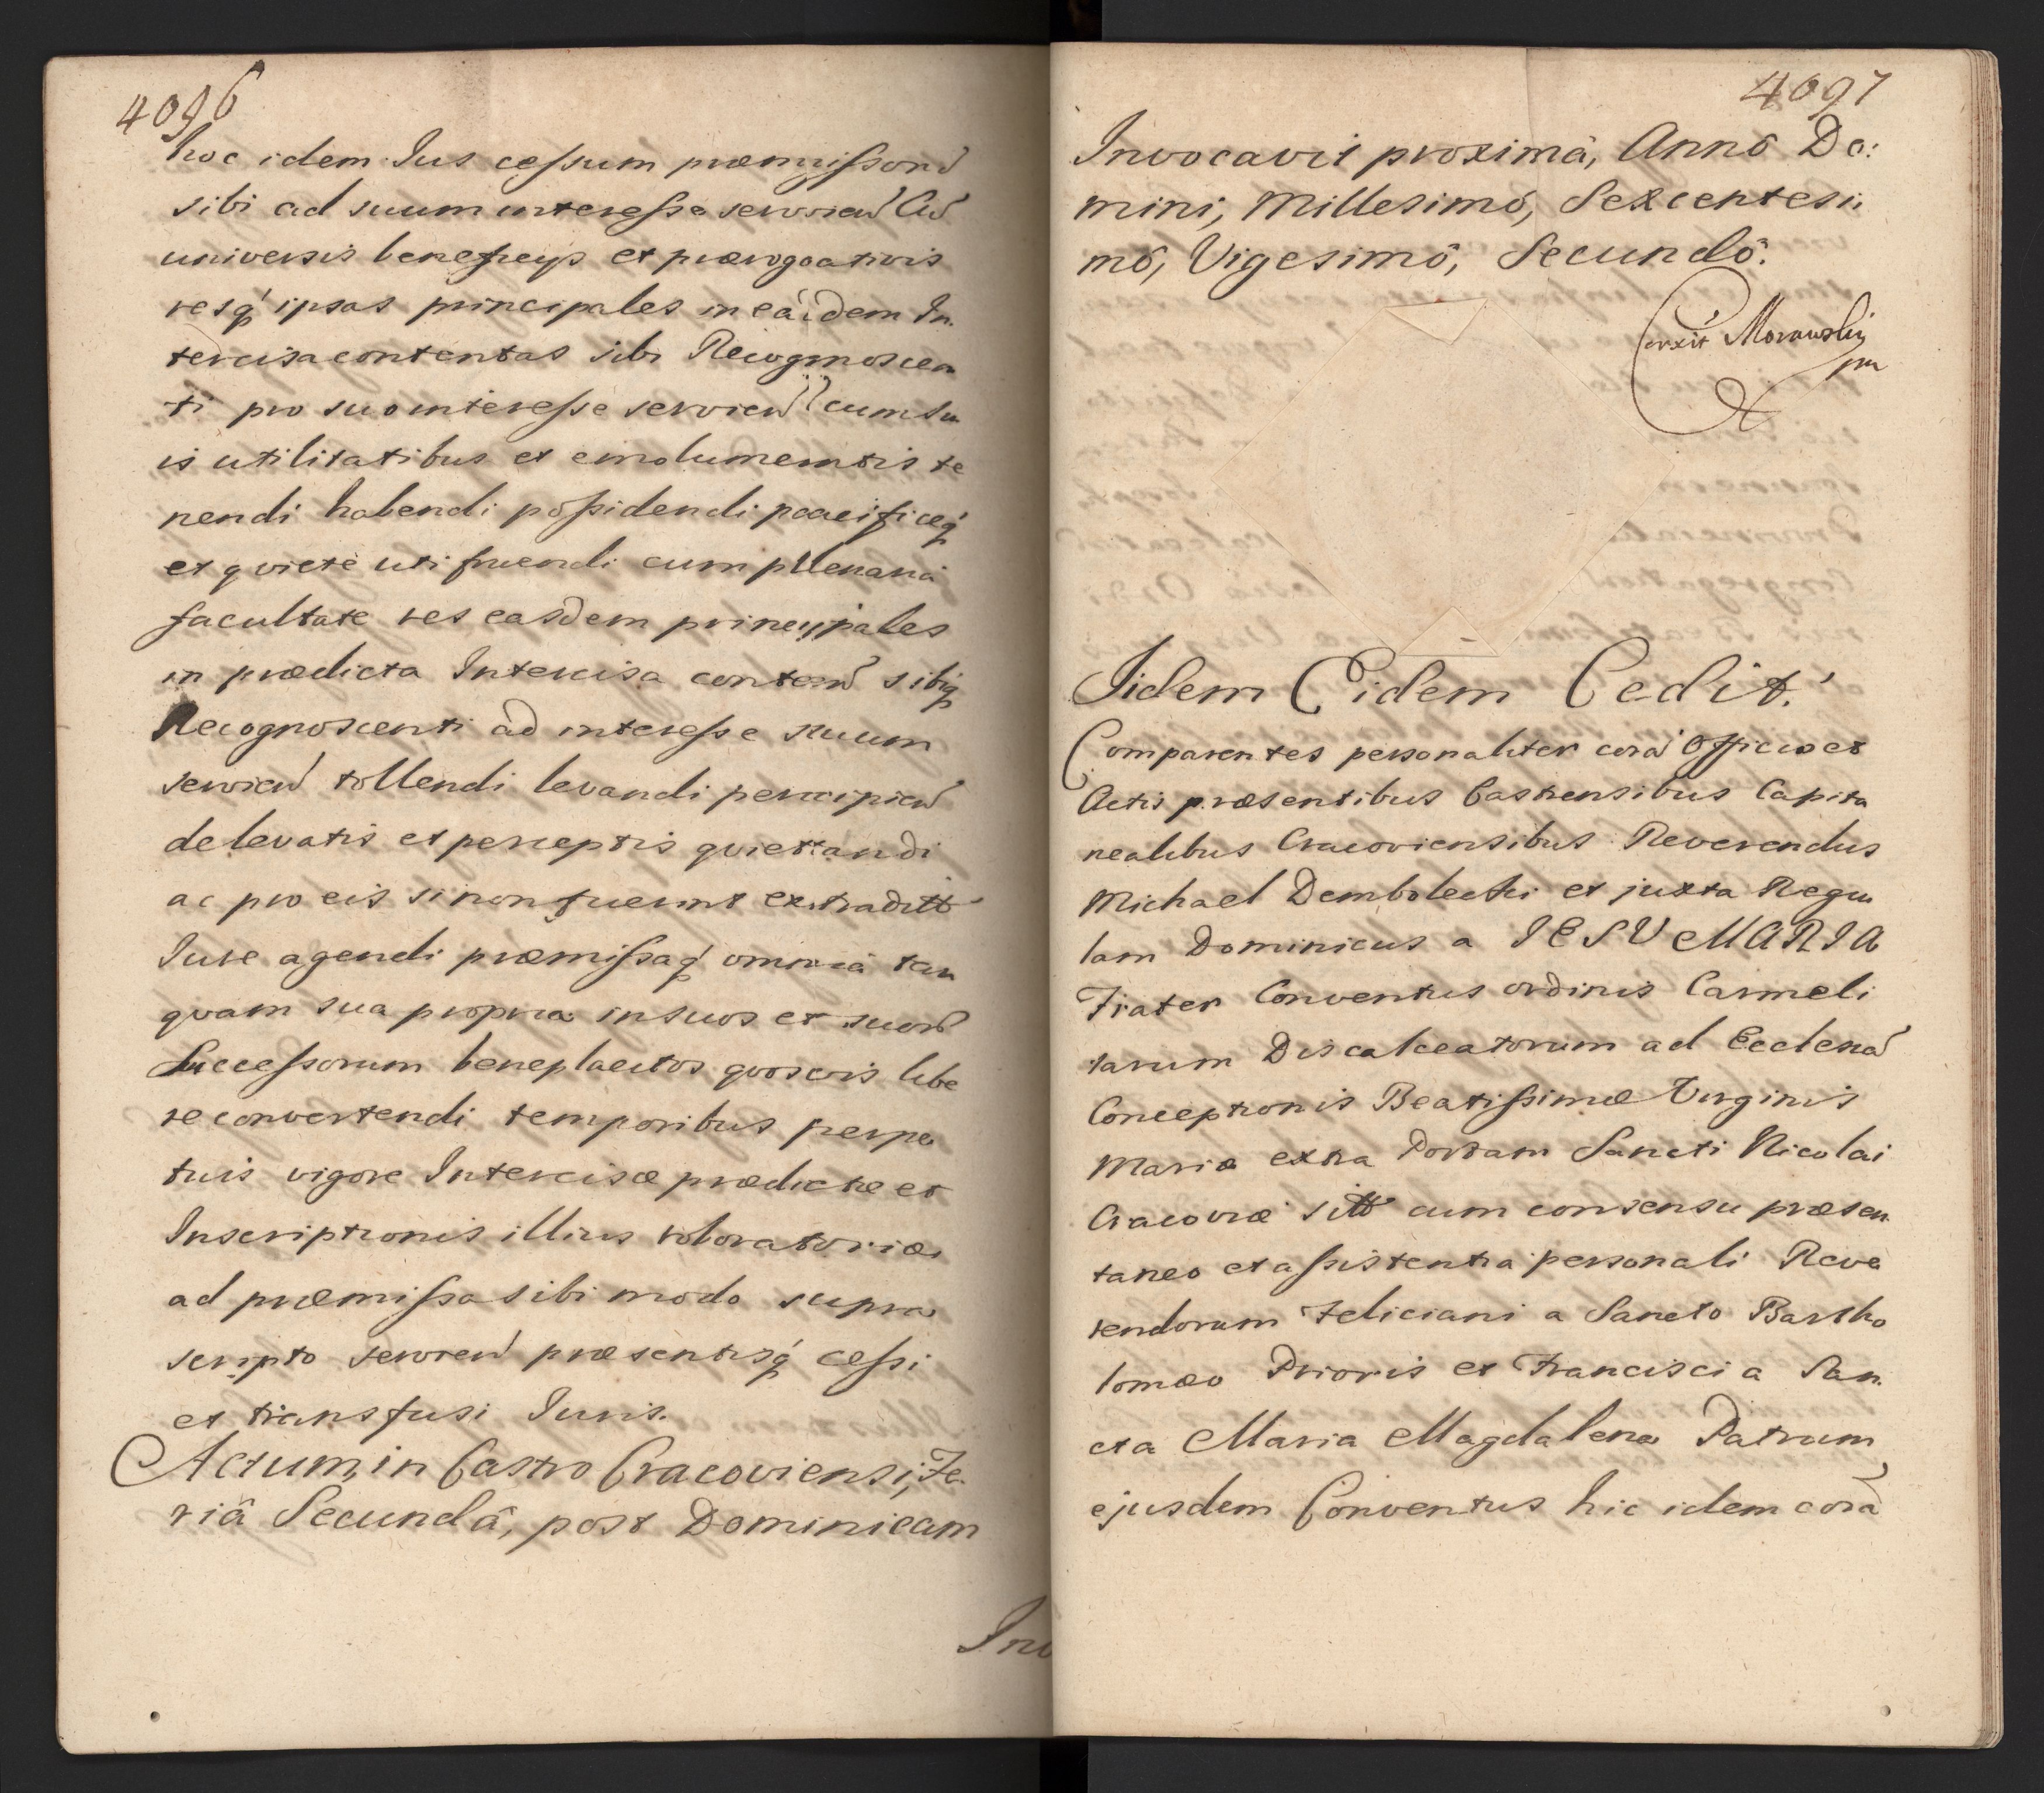 4096
hoc idem Ius cessum præmissorũ
sibi ad suum interesse servien Cũ
universis beneficijs et prærogativis
resq́ ipsas principales in eâdem In
tercisa contentas sibi Recognoscen
ti pro suo interesse servien cum su
is utilitatibus et emolumentis te
nendi habendi possidendi pacificeq́
et qviete uti fruendi cum plenaria
facultate res easdem principales
in prædicta Intercisa conten sibiq́
Recognoscenti ad interesse suum
servien tollendi levandi percipien
de levatis et perceptis qviettandi
ac pro eis si non fuerint extraditt
Iure agendi præmissaq́ omnia tan
qvam sua propria in suos et suorũ
Successorum beneplacitos qvosvis libe
re convertendi temporibus perpe
tuis vigore Intercisæ prædictæ et
Inscriptionis illius roboratoriæ
ad præmissa sibi modo supra
scripto servien præsentisq́ cessi
et transfusi Iuris.
Actum, in Castro Cracoviensi, Fe.
riâ Secundâ, post Dominicam
Inv
4097
Invocavit proximâ, Annô Do:
mini, Millesimô, Sexcentesi:
mô, Vigesimô, Secundô.
Corexit Morawski
mp
Iidem Eidem Cedit.
Comparentes personaliter corã Officio et
Actis præsentibus Castrensibus Capita
nealibus Cracoviensibus Reverendus
Michael Dembolecki et juxta Regu
lam Dominicus a IESU MARIA
Frater Conventus ordinis Carmeli
tarum Discalceatorum ad Ecclesiã
Conceptionis Beatissimæ Virginis
Mariæ extra Portam Sancti Nicolai
Cracoviæ sitt cum consensu præsen
taneo et assistentia personali Reve
rendorum Feliciani a Sancto Bartho
lomæo Prioris et Francisci a San
cta Maria Magdalena Patrum
ejusdem Conventus hic idem corã